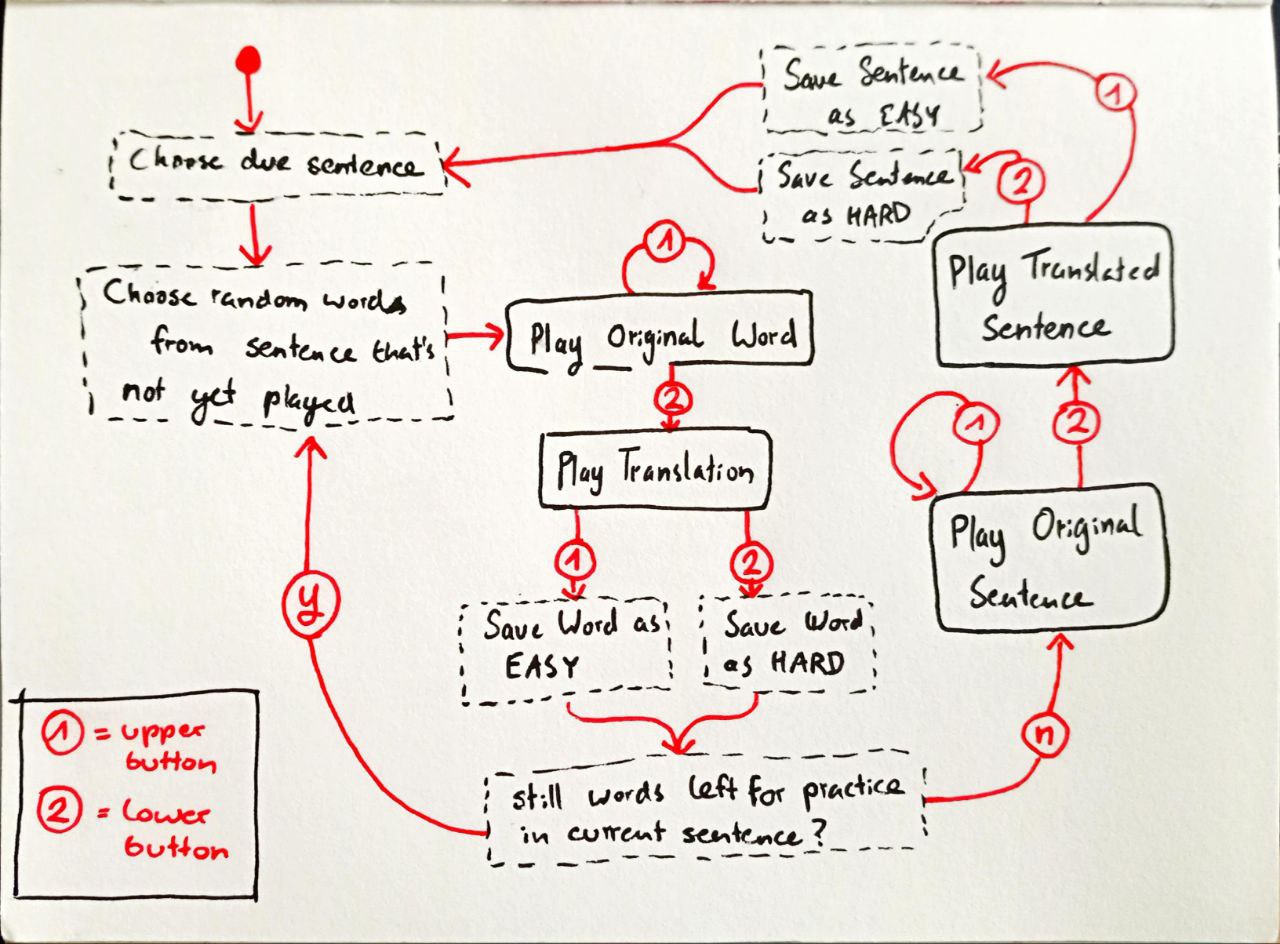 Choose due sentence
Choose random words
from sentence that's
not yet played
1
Play Original Word
2
Play Translation
1
2
Save Word as
EASY
Save Word
as HARD
still words left for practice
in current sentence?
y
n
Play Original
Sentence
1
2
Play Translated
Sentence
1
2
Save Sentence
as EASY
Save Sentence
as HARD
1 = upper
button
2 = lower
button